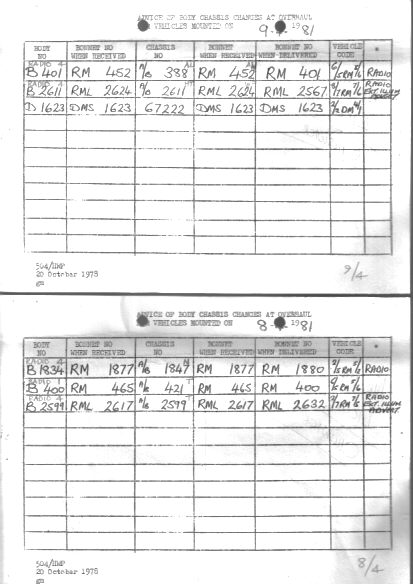 ADVICE OF BODY CHASSIS CHANGES AT OVERHAUL
VEHICLES MOUNTED ON 9 1981
BODY NO BONNET NO WHEN RECEIVED CHASSIS NO BONNET WHEN RECEIVED BONNET WHEN DELIVERED VEHICLE CODE *
RADIO 4
B 401 RM 452 A/B 388 RM 452 RM 401 6/5RM5/6 RADIO
B 2611 RML 2624 A/B 2611 RML 2624 RML 2567 RADIO EXT. ILLUM ADVERT
D 1623 DMS 1623 67222 DMS 1623 DMS 1623
504/HWP
20 October 1978
gm
9/4
ADVICE OF BODY CHASSIS CHANGES AT OVERHAUL
VEHICLES MOUNTED ON 8 1981
BODY NO BONNET NO WHEN RECEIVED CHASSIS NO BONNET WHEN RECEIVED BONNET WHEN DELIVERED VEHICLE CODE *
RADIO 4
B 1834 RM 1877 A/B 1847 RM 1877 RM 1880 2/5RM5/5 RADIO
RADIO 1
B 400 RM 465 A/B 421 RM 465 RM 400
RADIO 4
B 2599 RML 2617 A/B 2599 RML 2617 RML 2632 RADIO EXT. ILLUM ADVERT
504/HWP
20 October 1978
gm
8/4